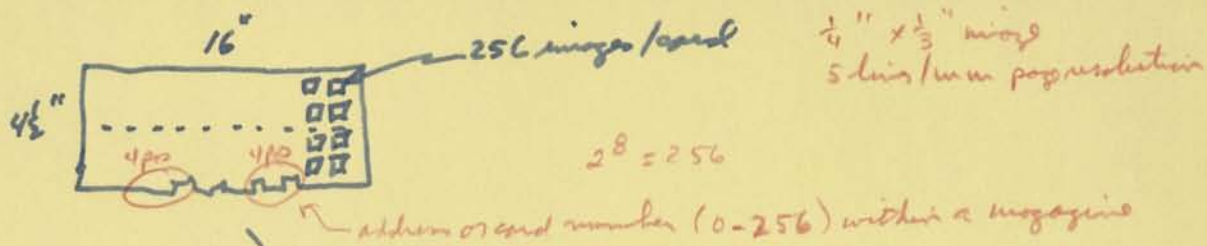 16"
256 images/card
1/4" x 1/3" image
5 lines/mm page resolution
4 1/2"
4 pos 4 pos
2^8 = 256
address or card number (0-256) within a magazine